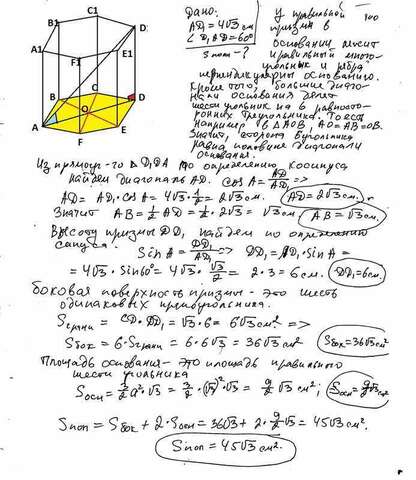 C1
B1
D1
A1
E1
F1
B
C
D
A
O
F
E
Дано:
AD₁ = 4√3 см
∠D₁AD = 60°
Sпол - ?
у правильной
призмы в
основании лежит
правильный много-
угольник и ребра
перпендикулярны основанию.
Кроме того, большие диаго-
нали основания делят
шестиугольник на 6 равносто-
ронних треугольника. То есть
например в ΔAOB, AO=AB=OB.
Значит, сторона 6 угольника
равна половине диагонали
основания.
Из прямоуг-го ΔD₁DA по определению косинуса
найдем диагональ AD. cos A = AD/AD₁ =>
AD = AD₁·cos A = 4√3·1/2 = 2√3 см. AD=2√3 см.
Значит AB = 1/2 AD = 1/2·2√3 = √3 см AB=√3 см.
Высоту призмы DD₁ найдем по определению
синуса. Sin A = DD₁/AD₁ => DD₁ = AD₁·sin A =
= 4√3·sin 60° = 4√3·√3/2 = 2·3 = 6 см. DD₁=6 см.
боковая поверхность призмы - это шесть
одинаковых прямоугольника.
Sграни = CD·DD₁ = √3·6 = 6√3 см² =>
Sбок = 6·Sграни = 6·6√3 = 36√3 см² Sбок=36√3 см²
Площадь основания - это площадь правильного
шестиугольника
Sосн = 3/2 a²·√3 = 3/2·(√3)²·√3 = 9/2 √3 см²; Sосн=9/2√3 см²
Sпол = Sбок + 2·Sосн = 36√3 + 2·9/2√3 = 45√3 см².
Sпол = 45√3 см².